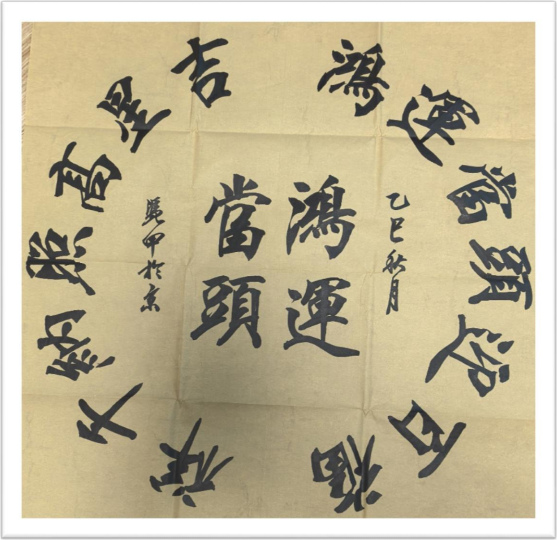 鴻運當頭迎百福
吉星高照納千祥
乙巳秋月
鴻運
當頭
甲於京